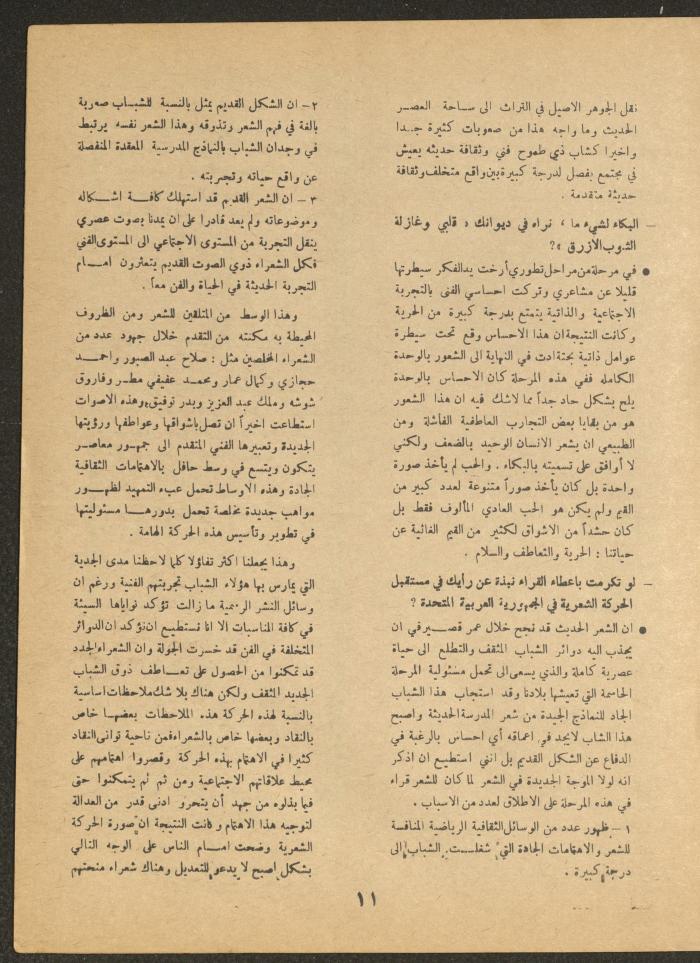 نقل الجوهر الاصيل في التراث الى ساحة العصر
الحديث وما واجه هذا من صعوبات كثيرة جدا
واخيرا كشاب ذي طموح فني وثقافة حديثه يعيش
في مجتمع يفصل لدرجة كبيرة بين واقع متخلف وثقافة
حديثة متقدمة .
— البكاء لشيء ما ، نراه في ديوانك « قلبي وغازلة
الثوب الأزرق »؟
● في مرحلة من مراحل تطوري أرخت يد الفكر سيطرتها
قليلا عن مشاعري وتركت احساسي الفنى بالتجربة
الاجتماعية والذاتية يتمتع بدرجة كبيرة من الحرية
وكانت النتيجة ان هذا الاحساس وقع تحت سيطرة
عوامل ذاتية بحتة ادت في النهاية الى الشعور بالوحدة
الكامله ففي هذه المرحلة كان الاحساس بالوحدة
يلح بشكل حاد جداً مما لاشك فيه ان هذا الشعور
هو من بقايا بعض التجارب العاطفية الفاشلة ومن
الطبيعي ان يشعر الانسان الوحيد بالضعف ولكني
لا أوافق على تسميته بالبكاء . والحب لم يأخذ صورة
واحدة بل كان يأخذ صوراً متنوعة لعدد كبير من
القيم ولم يكن هو الحب العادي المألوف فقط بل
كان حشداً من الاشواق لكثير من القيم الغائبة عن
حياتنا : الحرية والتعاطف والسلام .
— لو تكرمت باعطاء القراء نبذة عن رأيك في مستقبل
الحركة الشعرية في الجمهورية العربية المتحدة ؟
● ان الشعر الحديث قد نجح خلال عمر قصير في ان
يجذب اليه دوائر الشباب المثقف والتطلع الى حياة
عصرية كاملة والذي يسعى الى تحمل مسئولية المرحلة
الحاسمة التي تعيشها بلادنا وقد استجاب هذا الشباب
الجاد للنماذج الجيدة من شعر المدرسة الحديثة واصبح
هذا الشاب لايجد في اعماقه أي احساس بالرغبة في
الدفاع عن الشكل القديم بل انني استطيع ان اذكر
انه لولا الموجة الجديدة في الشعر لما كان للشعر قراء
في هذه المرحلة على الاطلاق لعدد من الاسباب .
١ – ظهور عدد من الوسائل الثقافية الرياضية المنافسة
للشعر والاهتمامات الجادة التي شغلت الشباب إلى
درجة كبيرة .
٢– ان الشكل القديم يمثل بالنسبة للشباب صعوبة
بالغة في فهم الشعر وتذوقه وهذا الشعر نفسه يرتبط
في وجدان الشباب بالنماذج المدرسية المعقدة المنفصلة
عن واقع حياته وتجربته .
٣ – ان الشعر القديم قد استهلك كافة اشكاله
وموضوعاته ولم يعد قادرا على ان يمدنا بصوت عصري
ينقل التجربة من المستوى الاجتماعي الى المستوى الفني
فكل الشعراء ذوي الصوت القديم يتعثرون امام
التجربة الحديثة في الحياة والفن معاً .
وهذا الوسط من المتلقين للشعر ومن الظروف
المحيطة به مكنته من التقدم خلال جهود عدد من
الشعراء المخلصين مثل : صلاح عبد الصبور واحمد
حجازي وكمال عمار ومحمد عفيفي مطر وفاروق
شوشه وملك عبد العزيز وبدر توفيق وهذه الاصوات
استطاعت اخيراً ان تصل باشواقها وعواطفها ورؤيتها
الجديدة وتعبيرها الفني المتقدم الى جمهور معاصر
يتكون ويتسع في وسط حافل بالاهتمامات الثقافية
الجادة وهذه الاوساط تحمل عبء التمهيد لظهور
مواهب جديدة مخلصة تحمل بدورها مسئوليتها
في تطوير وتأسيس هذه الحركة الهامة .
وهذا يجعلنا اكثر تفاؤلا كلما لاحظنا مدى الجدية
التي يمارس بها هؤلاء الشباب تجربتهم الفنية ورغم ان
وسائل النشر الرسمية ما زالت تؤكد نواياها السيئة
في كافة المناسبات الا اننا نستطيع ان نؤكد ان الدوائر
المتخلفة في الفن قد خسرت الجولة وان الشعراء الجدد
قد تمكنوا من الحصول على تعاطف ذوق الشباب
الجديد المثقف ولكن هناك بلا شك ملاحظات اساسية
بالنسبة لهذه الحركة هذه الملاحظات بعضها خاص
بالنقاد وبعضها خاص بالشعراء فمن ناحية توانى النقاد
كثيرا في الاهتمام بهذه الحركة وقصروا اهتمامهم على
محيط علاقاتهم الاجتماعية ومن ثم لم يتمكنوا حتى
فيما بذلوه من جهد أن يتحروا ادنى قدر من العدالة
لتوجيه هذا الاهتمام وكانت النتيجة ان صورة الحركة
الشعرية وضحت امام الناس على الوجه التالي
بشكل اصبح لا يدعو للتعديل وهناك شعراء منحتهم
١١